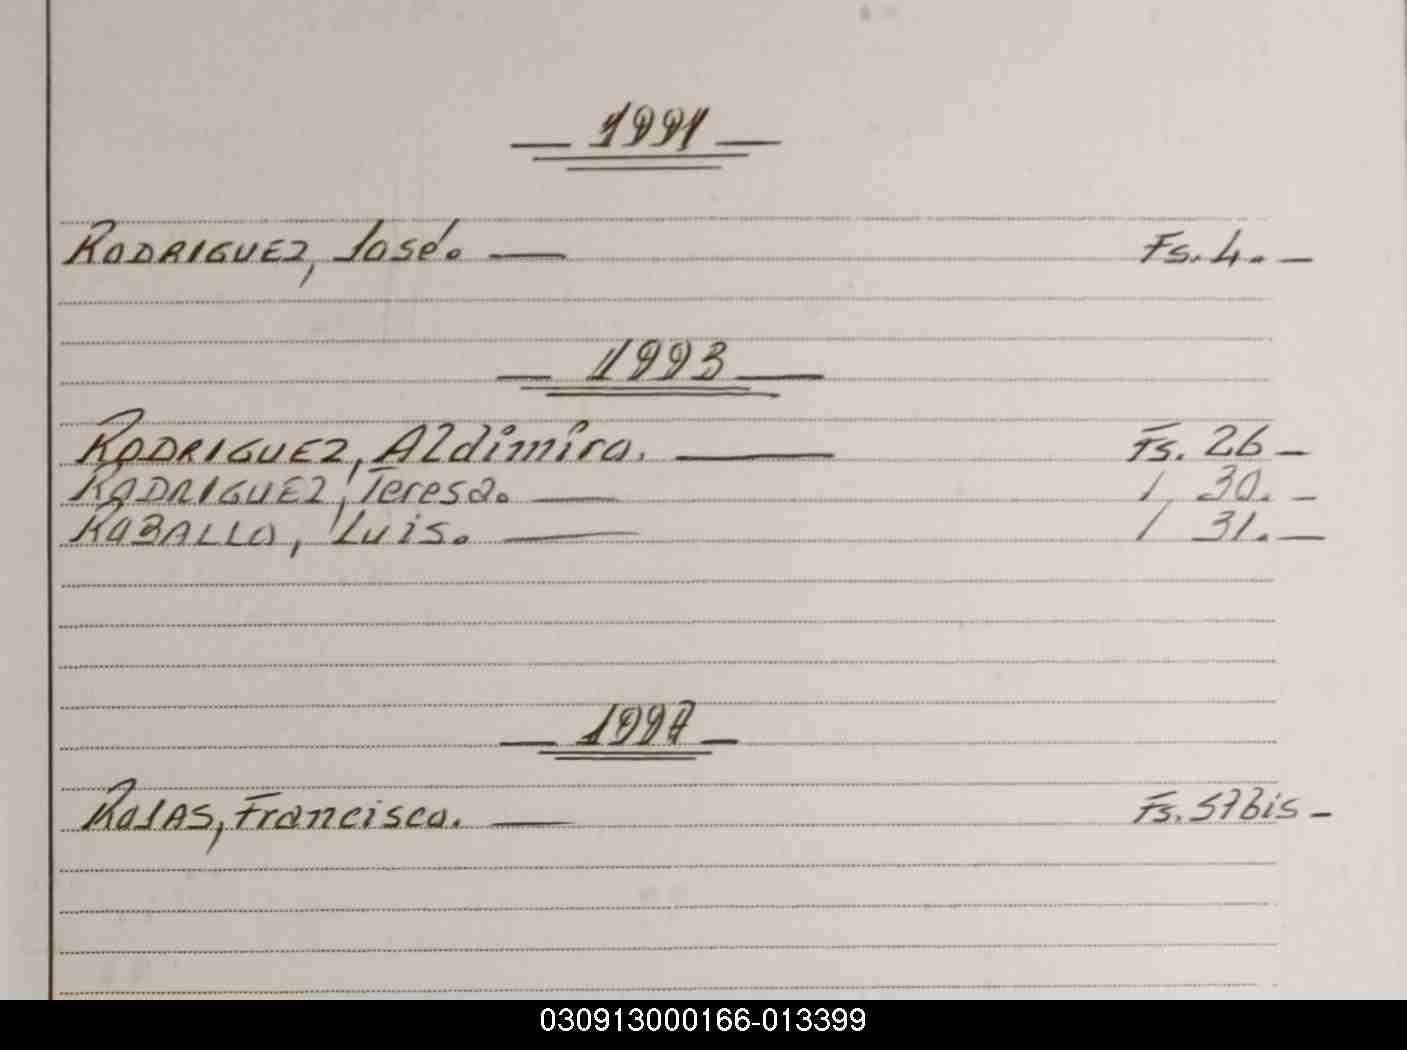 1991
RODRIGUEZ, José. — Fs. 4. —
1993
RODRIGUEZ, Aldimira. — Fs. 26 —
RODRIGUEZ, Teresa. — / 30. —
RABALLO, Luis. — / 31. —
1997
ROJAS, Francisco. — Fs. 57bis —
030913000166-013399